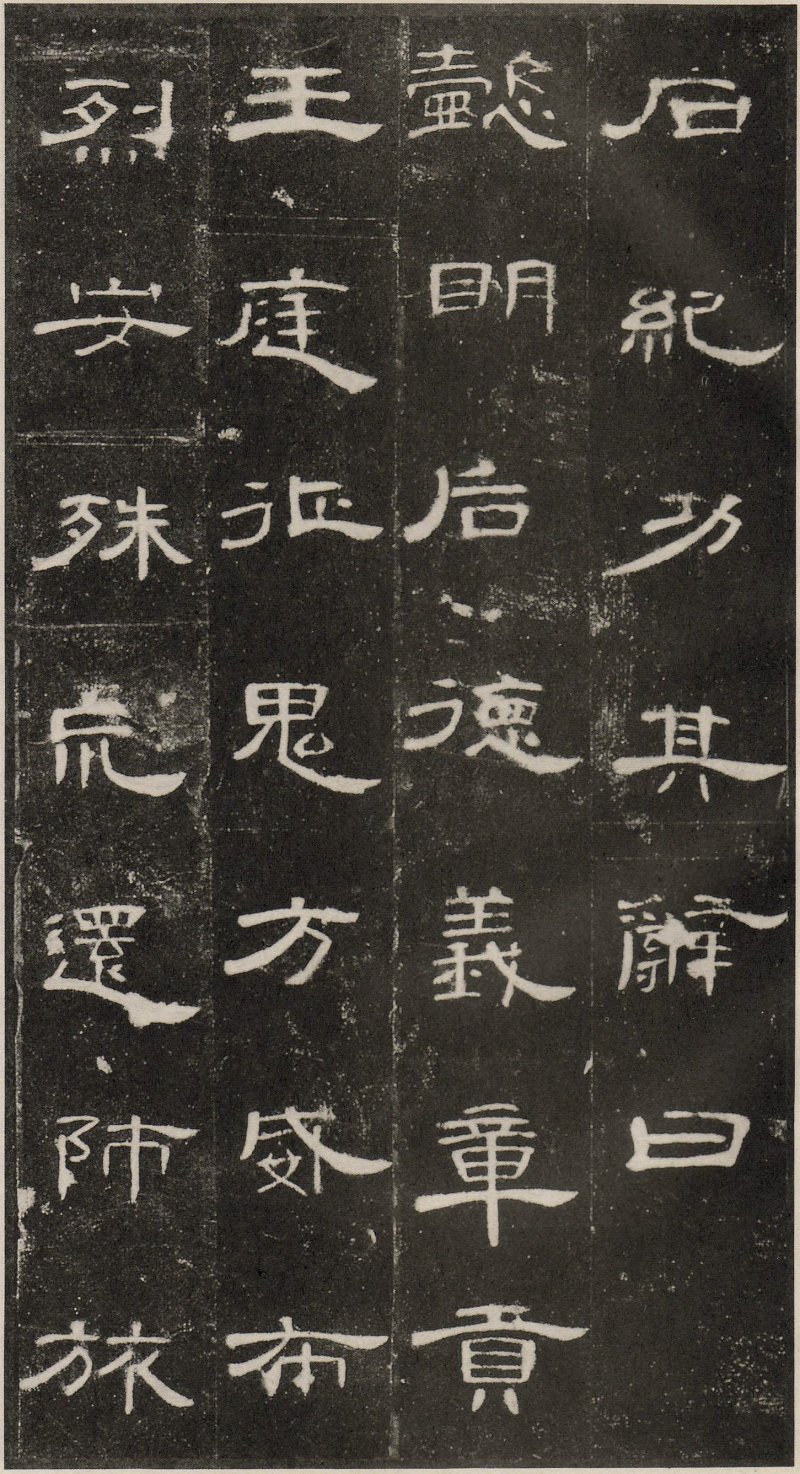 石紀功其辭曰
懿明后德義章貢
王庭征鬼方威布
烈安殊荒還師旅